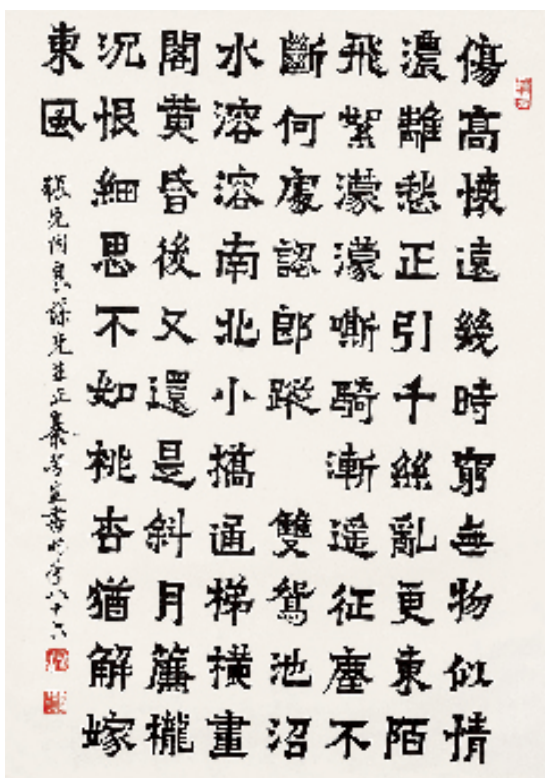 傷高懷遠幾時窮無物似情
濃離愁正引千絲亂更東陌
飛絮濛濛嘶騎漸遥征塵不
斷何處認郎蹤 雙鴛池沼
水溶溶南北小橋通梯橫畫
閣黄昏後又還是斜月簾櫳
沉恨細思不如桃杏猶解嫁
東風
張先詞 先生正 書時年八十六